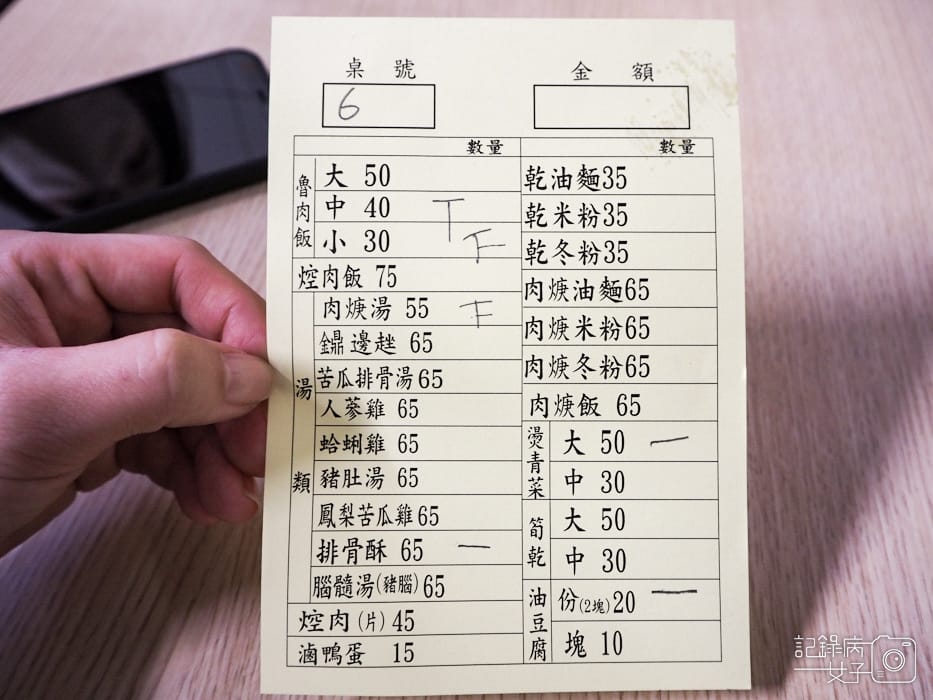 桌號
6
金額
數量
魯肉飯
大 50
中 40 T
小 30 F
焢肉飯 75
湯類
肉焿湯 55 F
鼎邊趖 65
苦瓜排骨湯65
人蔘雞 65
蛤蜊雞 65
豬肚湯 65
鳳梨苦瓜雞65
排骨酥 65 一
腦髓湯(豬腦)65
焢肉(片)45
滷鴨蛋 15
數量
乾油麵35
乾米粉35
乾冬粉35
肉焿油麵65
肉焿米粉65
肉焿冬粉65
肉焿飯 65
燙青菜
大 50 一
中 30
筍乾
大 50
中 30
油豆腐
份(2塊)20 一
塊 10
記錄病
女子